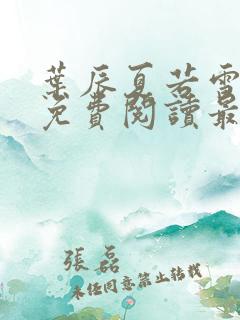 葉辰夏若雪
免費閱讀最
張磊
未經同意禁止轉載